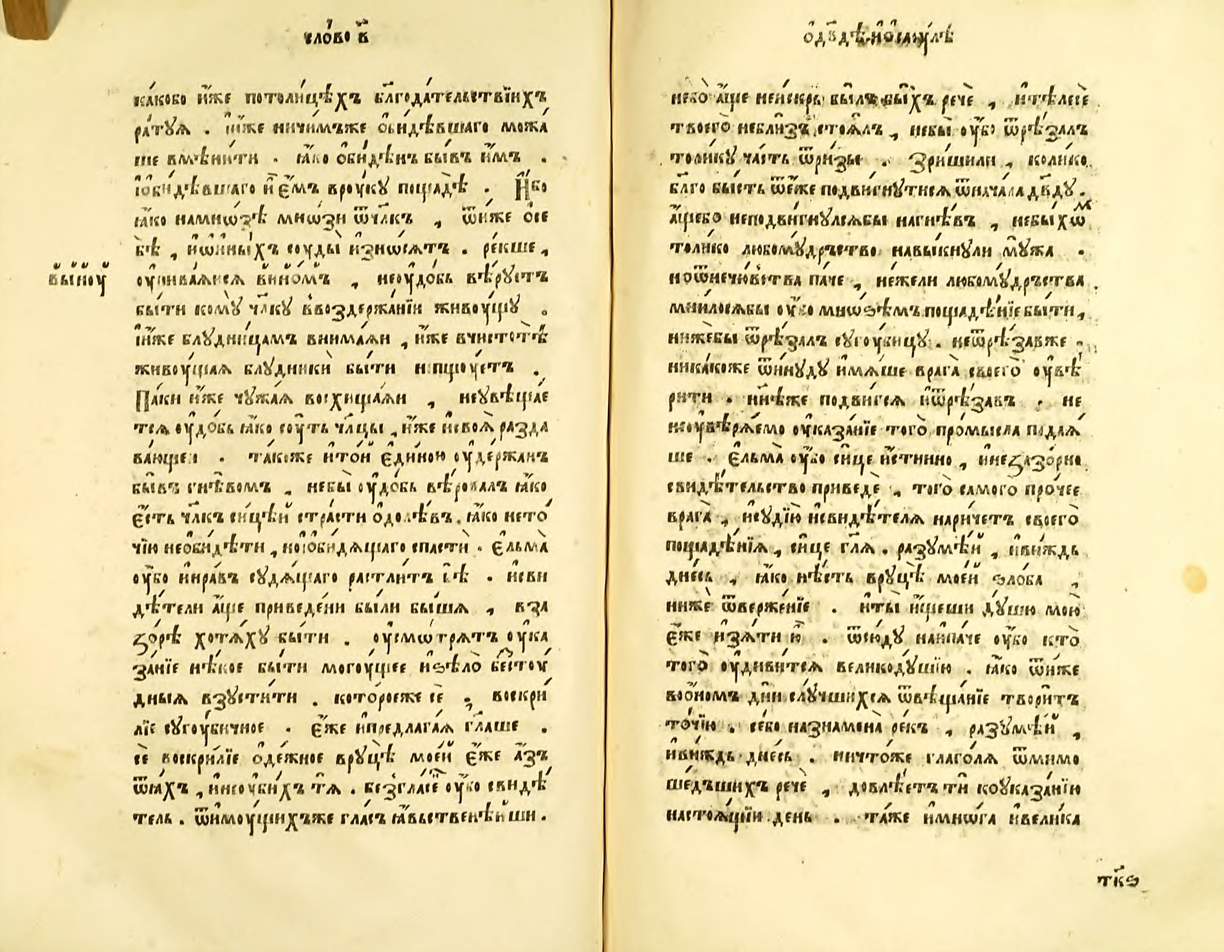 сло́во в҃
ка́кобо и҆́же потоли́цѣхъ бл҃года́тельствїихъ
ра́туѧ . ни́же ничи́мъже ѡ҆би́дѣвшаго можа́
ше вмѣни́ти . ꙗ҆́ко ѻ҆би́дѣнъ бы́въ и҆́мъ .
і҆ѻби́дѣвшаго и҆є҆́мъ вроу́ку пощадѣ̀ . И҆́бо
ꙗ҆́ко намно́зѣ мно́зи ѿч҃лкъ , ѿни́же ѻ҆се
бѣ̀ , и҆ѡ҆и́ныхъ соуды̀ и҆зно́сѧтъ . ре́кше ,
вы́ноу
оу҆пива́ѧисѧ вино́мъ , неоудо́бь вѣ́руетъ
бы́ти кому̀ ч҃лку ввоздержа́нїи живоу́щу .
ни́же блудни́цамъ внима́ѧи , и҆́же вчистотѣ̀
живоу́щаѧ блудникѝ бы́ти непщу́етъ .
Па́ки и҆́же чужа́ѧ восхища́ѧи , неувѣща́е
тсѧ оу҆до́бь ꙗ҆́ко соу́ть ч҃лцы , и҆́же и҆своѧ̀ разда
ва́ющеи . та́коже и҆то́и є҆ди́ною оу҆держа́нъ
бы́въ гнѣ́вомъ , небы̀ оу҆до́бь вѣ́ровалъ ꙗ҆́ко
є҆́сть ч҃лкъ си́цѣй стра́сти ѻ҆долѣ́въ . ꙗ҆́ко нето́
чїю необи́дѣти , но і҆ѻби́дѧщаго спастѝ . Є҆льма̀
оу҆́бо и҆нра́въ судѧ́щаго растли́тъ сѐ . и҆сви
дѣ́тели а҆́ще приведе́ни бы́ли бы́шѧ , вза
зо́рѣ хотѧ́ху бы́ти . оу҆смо́трѧтъ оу҆ка
за́нїе нѣ́кое бы́ти могоу́щее и҆ѕѣло̀ бестоу́
дныѧ взусти́ти . кото́роеже сѐ , воскри́
лїе сугоу́бичное . є҆́же и҆предлага́ѧ гл҃аше .
сѐ воскри́лїе ѻ҆де́жное вруцѣ̀ мое́й є҆́же а҆́зъ
ѿѧ́хъ , и҆неоуби́хъ тѧ̀ . безгла́се оу҆́бо свидѣ́
тель . ѿимоу́щихъже гла́съ ꙗ҆́вьственѣйши .
ѻ҆дв҃дѣ и҆ѻсаоу́лѣ
небо̀ а҆́ще неи́скрь бы́лъбы́хъ речѐ , и҆тѣлесѐ
твоего̀ небли́зъ стоѧ́лъ , небы̀ оу҆́бо ѿрѣ́залъ
толи́ку ча́сть ѿри́зы . Зри́шили , коли́ко
бл҃го бы́сть ѿе́же подви́гнутисѧ ѿнача́ла дв҃ду .
а҆́щебо неподви́гнулсѧбы нагнѣ́въ , небы́хѡм
толи́ко любому́дръство навы́кнули му́жа .
ноѿнечю́вства па́че , не́жели любому́дръства
мни́лосѧбы оу҆́бо мно́ѕѣмъ пощадѣ́нїе бы́ти ,
ни́жебы ѿрѣ́залъ сугоу́бицу . неѿрѣ́завже
ника́коже ѿину́ду и҆мѧ́ше врага̀ своего̀ оу҆вѣ́
рити . нн҃ѣже подви́гсѧ и҆ѿрѣ́завъ . не
неоувѣрѧ́емо оу҆каза́нїе того̀ про́мысла подаѧ́
ше . Є҆льма̀ оу҆́бо си́це и҆́стинно , и҆незазо́рно
свидѣ́тельство приведѐ , того̀ самого̀ про́чее
врага̀ , и҆судїю̀ и҆свидѣ́телѧ нарица́етъ своего̀
пощадѣ́нїѧ , си́це гл҃ѧ . разумѣ́й , и҆ви́ждь
дне́сь , ꙗ҆́ко нѣ́сть вруцѣ̀ мое́й ѕло́ба ,
нижѐ ѿверже́нїе . и҆ты̀ и҆́щеши ду́шю мою̀
є҆́же и҆зѧ́ти ю҆̀ . ѿсю́ду наипа́че оу҆́бо кто̀
того̀ оу҆диви́тсѧ великоду́шїю . ꙗ҆́ко ѿи́же
вѻ́номъ дн҃и случшихсѧ ѿвѣща́нїе твори́тъ
то́чїю . се́бо назнамона̀ ре́къ , разумѣ́й ,
и҆ви́ждь дне́сь . ничто́же глаго́лѧ ѿмимо
ше́дъшихъ речѐ , довлѣ́етъ ти коуказа́нїю
настоѧ́щїи де́нь . та́же и҆мнѡ́га и҆вели́ка
тк҃ѳ